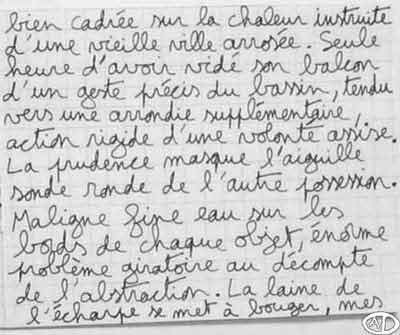 bien cadrée sur la chaleur instruite
d'une vieille ville arrosée. Seule
heure d'avoir vidé son balcon
d'un geste précis du bassin, tendu
vers une arrondie supplémentaire,
action rigide d'une volonté assise.
La prudence masque l'aiguille
sonde ronde de l'autre possession.
Maligne fine eau sur les
bords de chaque objet, énorme
problème giratoire au décompte
de l'abstraction. La laine de
l'écharpe se met à bouger, mes